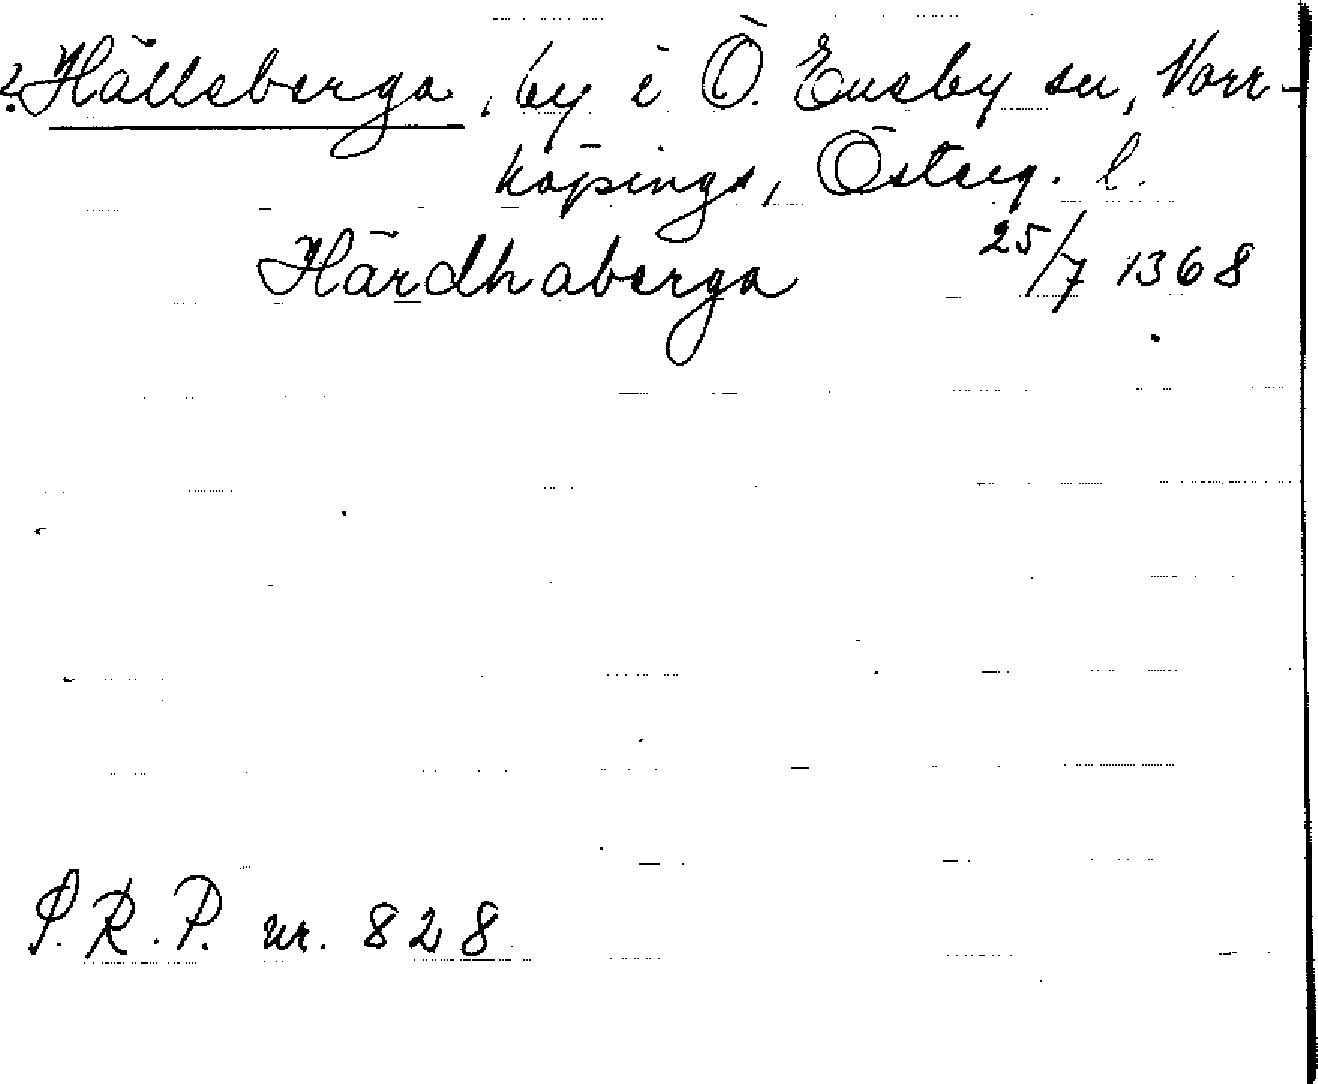 ?Hällsberga, by i Ö. Eneby sn, Norr-
köpings, Österg. l.
Härdhaberga 25/7 1368
S.R.P. nr. 828